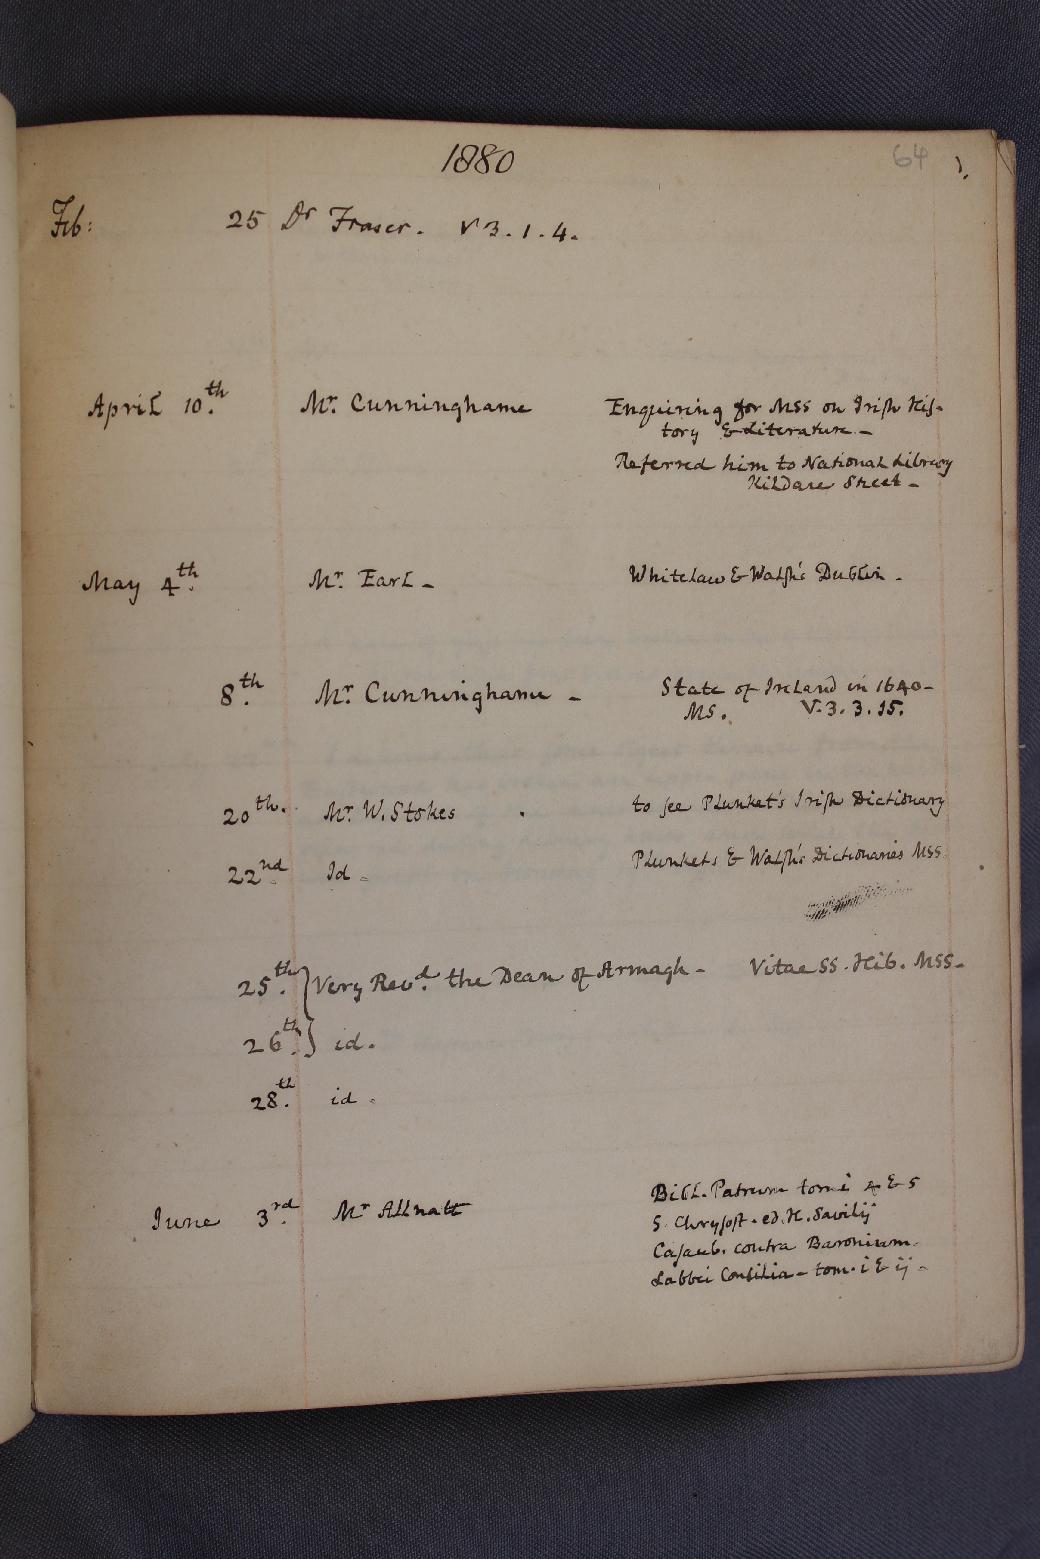 1880
64 1.
Feb: 25 Dr Fraser. V 3. 1. 4.
April 10.th Mr. Cunninghame Enquiring for MSS on Irish His-
tory & Literature. -
Referred him to National Library
Kildare Street -
May 4.th Mr. Earl - Whitelaw & Walsh's Dublin -
8.th Mr. Cunninghame - State of Ireland in 1640 -
MS. V. 3. 3. 15.
20th. Mr. W. Stokes . to see Plunket's Irish Dictionary
22nd. Id - Plunkets & Walsh's Dictionaries MSS
25.th Very Revd. the Dean of Armagh - Vitae SS. Hib. MSS -
26.th id.
28.th id -
June 3.rd Mr Allnatt Bibl. Patrum tomi 4 & 5
S. Chrysost. ed. H. Savilij
Casaub. contra Baronium.
Labbei Consilia - tom. i & ij -